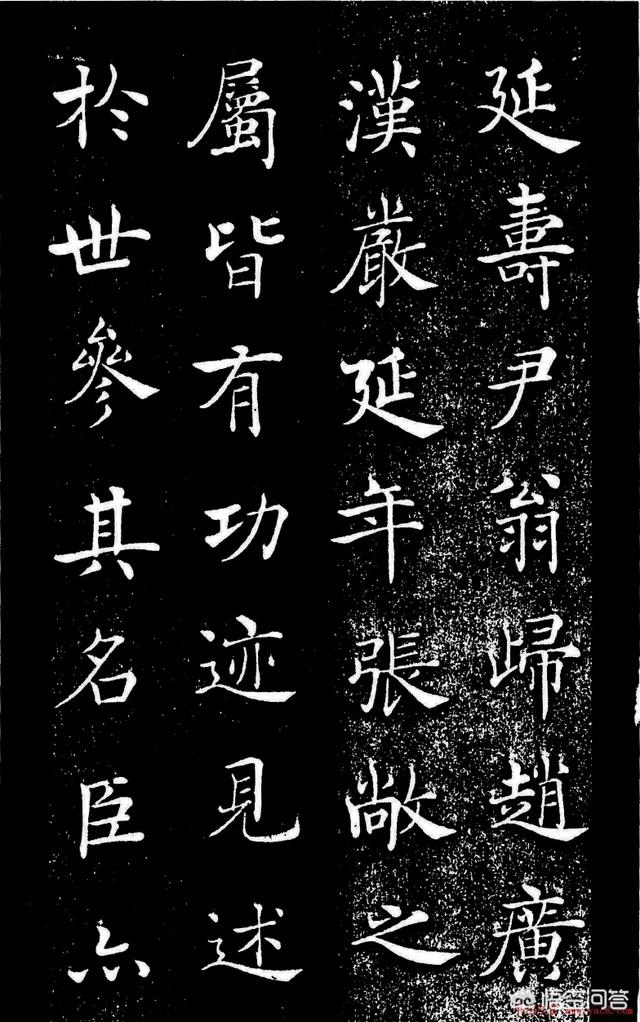 延壽尹翁歸趙廣
漢嚴延年張敞之
屬皆有功迹見述
於世參其名臣亦
悟空问答